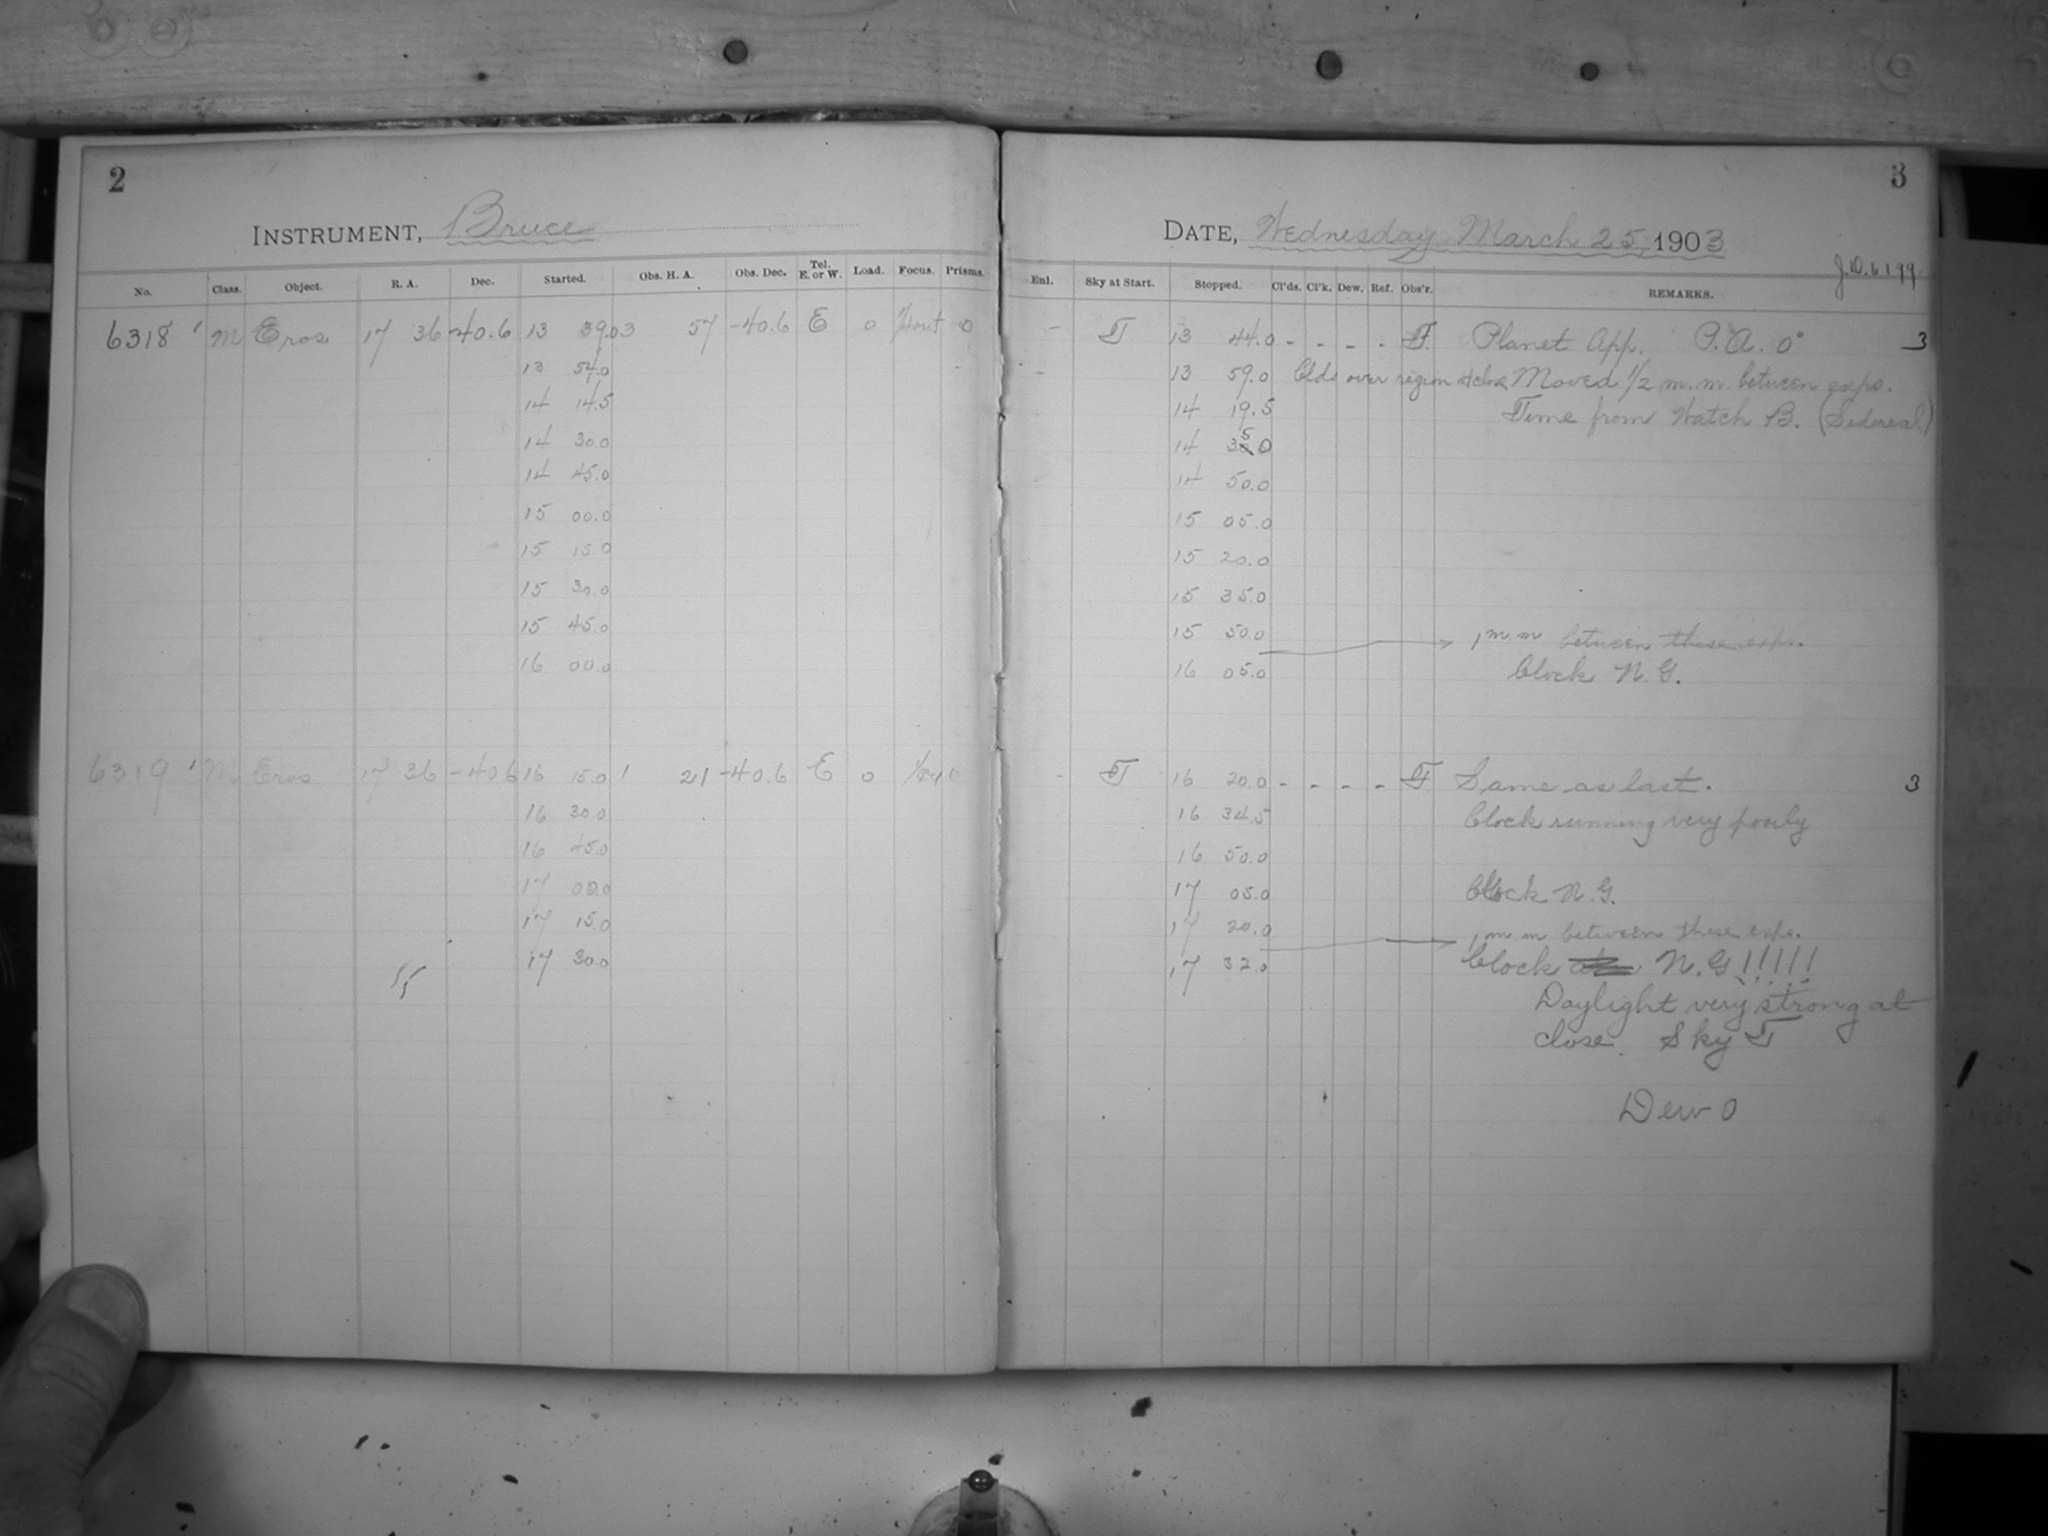 2
INSTRUMENT, Bruce
No. Class. Object. R. A. Dec. Started. Obs. H. A. Obs. Dec. Tel. E. or W. Load. Focus. Prisms.
6318 M Eros 17 36 -40.6 13 39.0 3 57 -40.6 E 0 0
13 54.0
14 14.5
14 30.0
14 45.0
15 00.0
15 15.0
15 30.0
15 45.0
16 00.0
6319 M Eros 17 36 -40 6 16 15.0 1 21 -40.6 E 0
16 30.0
16 45.0
17 00.0
17 15.0
17 30.0
3
DATE, Wednesday March 25, 1903
J.D. 6199
Enl. Sky at Start. Stopped. Cl'ds. Cl'k. Dew. Ref. Obs'r. REMARKS.
- T 13 44.0 - - - - F. Planet App. P.A. 0° 3
- 13 59.0 Clds over region at close Moved 1/2 m.m. between exps.
14 19.5 Time from Watch B. (Sidereal)
14 35.0
14 50.0
15 05.0
15 20.0
15 35.0
15 50.0
1 m m between these exps.
16 05.0 Clock N.G.
- T 16 20.0 - - - - F Same as last. 3
16 34.5 Clock running very poorly
16 50.0
17 05.0 Clock N.G.
17 20.0
1 m m between these exps.
17 32.0 Clock N.G!!!!!
Daylight very strong at
close. Sky T
Dew 0